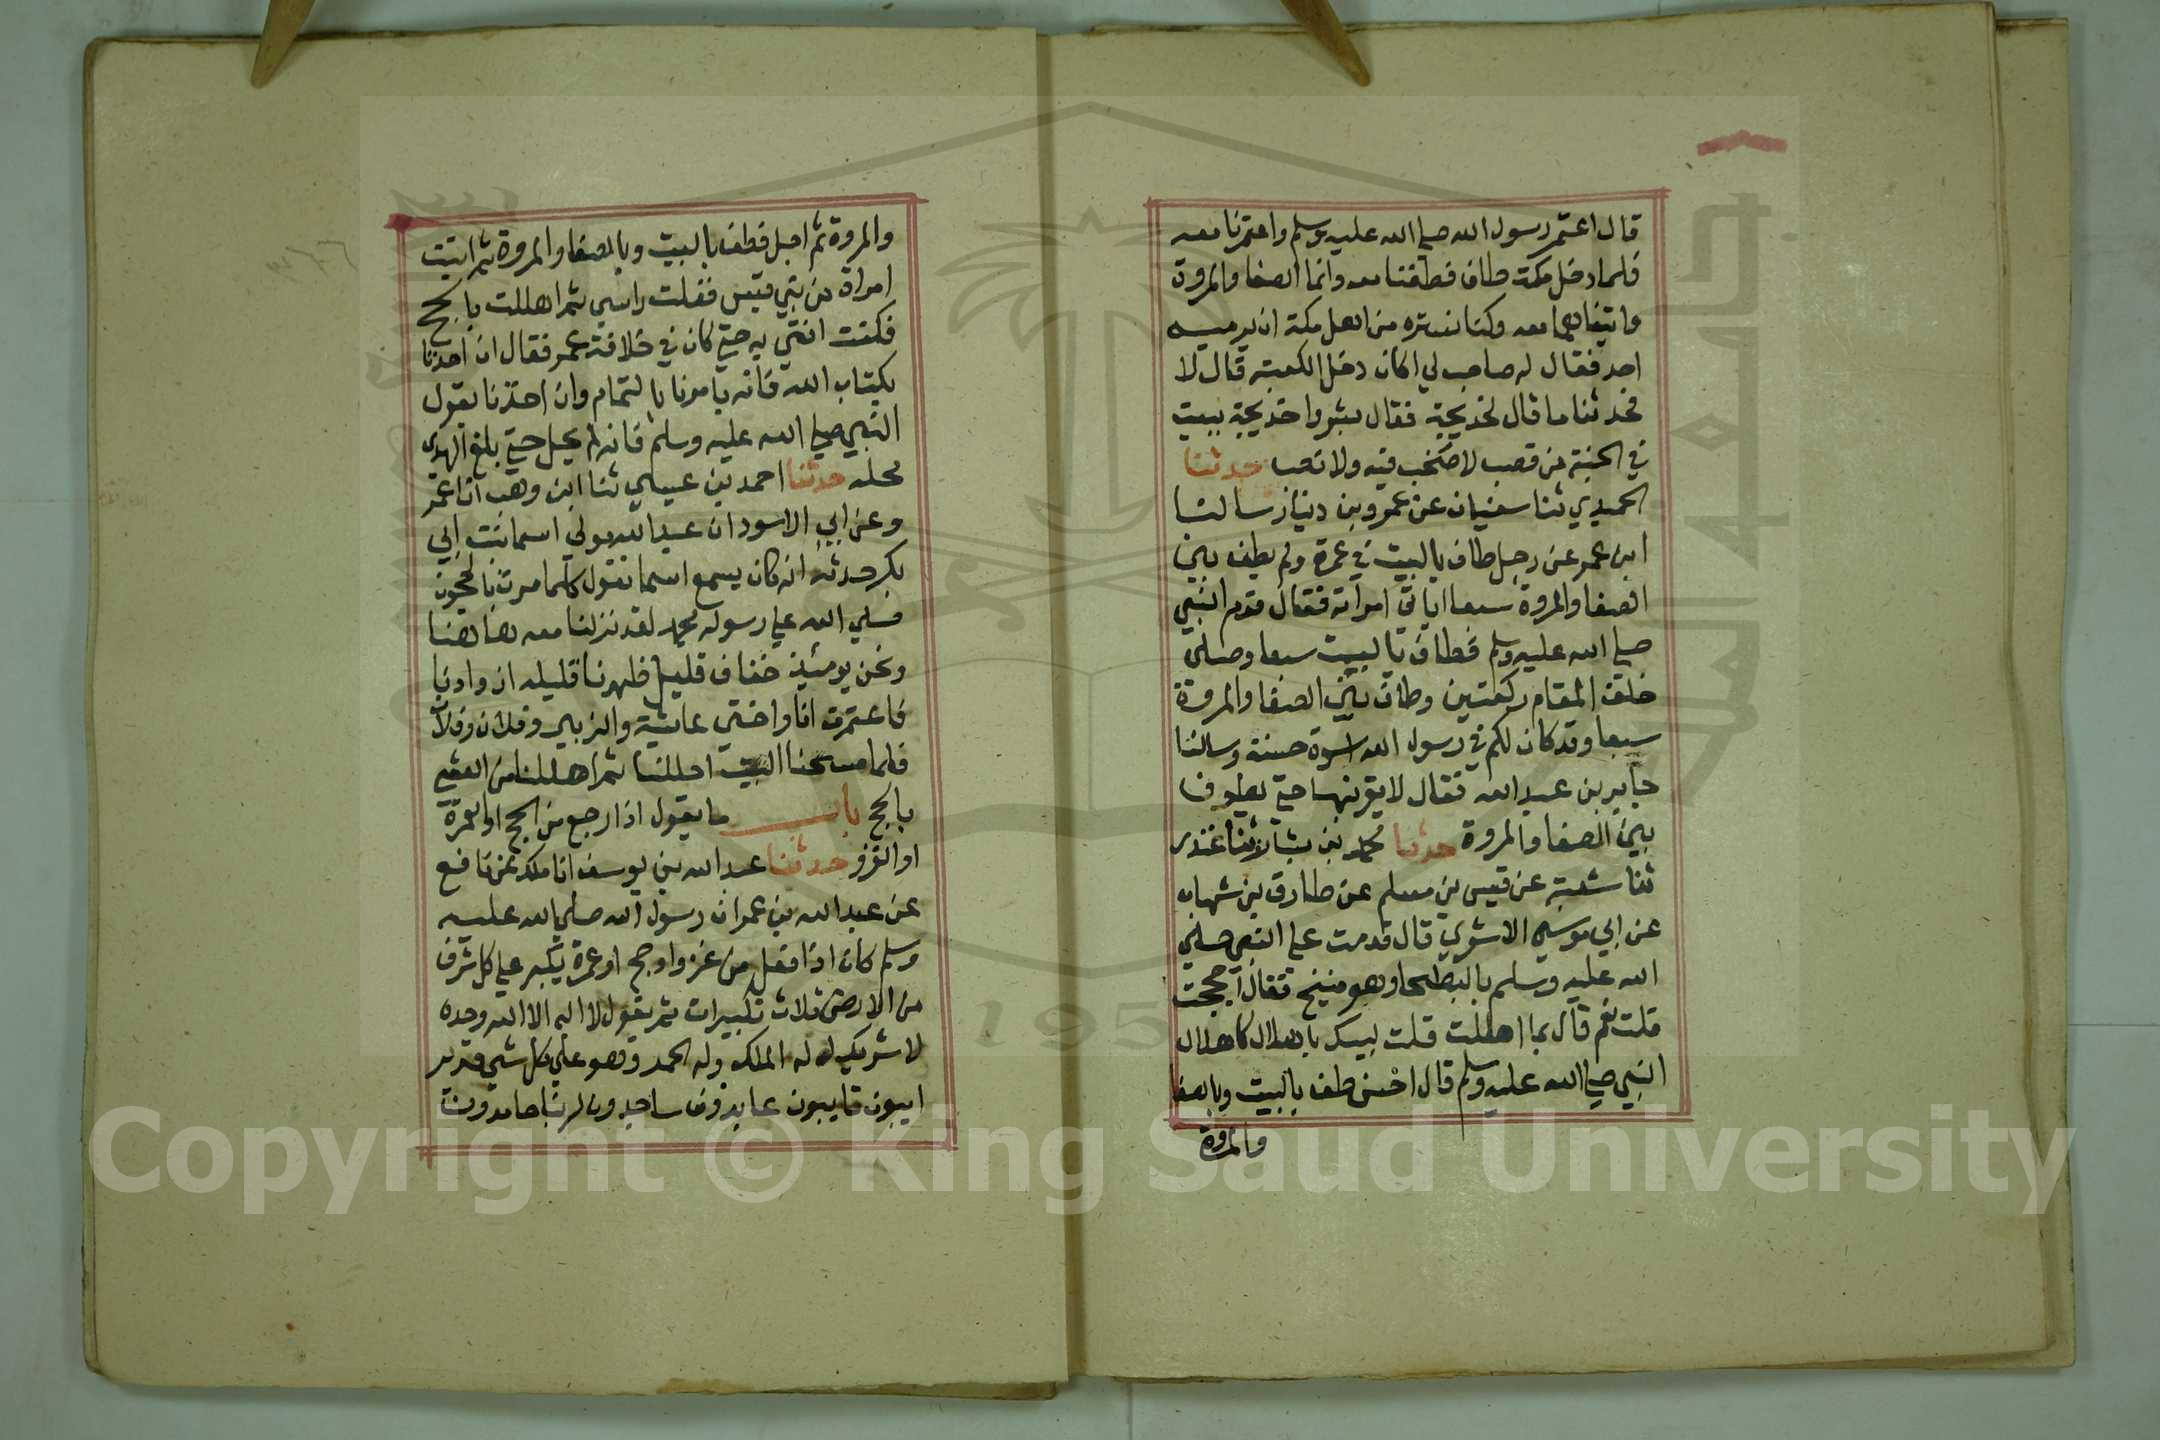 قال اعتمر رسول الله صلى الله عليه وسلم واعتمرنا معه
فلما دخل مكة طاف فطفنا معه واتما الصفا والمروة
واتيناهما معه وكنا نستره من اهل مكة ان يرميه
احد فقال له صاحب لي اكان دخل الكعبة قال لا
فحدثنا ما قال لخديجة فقال بشروا خديجة ببيت
في الجنة من قصب لا صخب فيه ولا نصب حدثنا
الحميدي ثنا سفيان عن عمرو بن دينار سالنا
ابن عمر عن رجل طاف بالبيت في عمرة ولم يطف بين
الصفا والمروة سبعا اياتي امراته فقال قدم النبي
صلى الله عليه وسلم فطاف بالبيت سبعا وصلى
خلف المقام ركعتين وطاف بين الصفا والمروة
سبعا وقد كان لكم في رسول الله اسوة حسنة وسالنا
جابر بن عبد الله فقال لا يقربنها حتى يطوف
بين الصفا والمروة حدثنا محمد بن بشار ثنا غندر
ثنا شعبة عن قيس بن مسلم عن طارق بن شهاب
عن ابي موسى الاشوري قال قدمت على النبي صلى
الله عليه وسلم بالبطحا وهو منيخ فقال احججت
قلت نعم قال بما اهللت قلت لبيك باهلال كاهلال
النبي صلى الله عليه وسلم قال احسن طف بالبيت وبالصفا
والمروة
والمروة ثم احل فطف بالبيت وبالصفا والمروة ثم اتيت
امراة من بني قيس ففلت راسي ثم اهللت بالحج
فكنت افتي به حتى كان في خلافة عمر فقال ان اخذنا
بكتاب الله فانه يامرنا بالتمام وان اخذنا بقول
النبي صلى الله عليه وسلم فانه لم يحل حتى بلغ الهدى
محله حدثنا احمد بن عيسى ثنا ابن وهب انا عمر
وعن ابي الاسود ان عبد الله مولى اسما بنت ابي
بكر حدثه انه كان يسمع اسما تقول كلما مرت بالحجون
صلى الله على رسوله محمد لقد نزلنا معه هاهنا
ونحن يومئذ خفاف قليل ظهرنا قليله ازوادنا
فاعتمرت انا واختي عائشة والزبير وفلان وفلان
فلما مسحنا البيت احللنا ثم اهللنا من العشي
بالحج باب ما يقول اذا رجع من الحج او العمرة
او الغزو حدثنا عبد الله بن يوسف انا ملك عن نافع
عن عبد الله بن عمر ان رسول الله صلى الله عليه
وسلم كان اذا قفل من غزو او حج او عمرة يكبر على كل شرف
من الارض ثلاث تكبيرات ثم يقول لا اله الا الله وحده
لا شريك له له الملك وله الحمد وهو على كل شي قدير
ايبون تايبون عابدون ساجدون لربنا حامدون
Copyright © King Saud University
1957